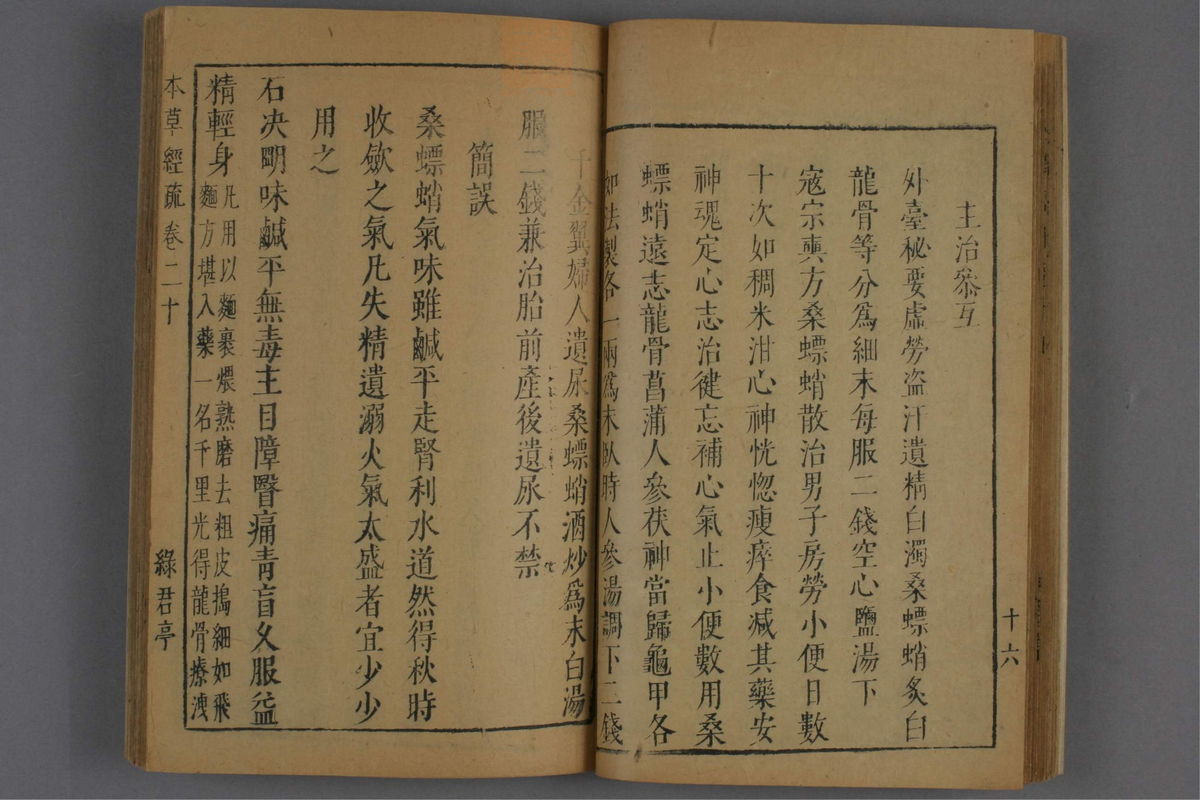 十六
主治叅互
外臺秘要虛勞盗汗遺精白濁桑螵蛸炙白
龍骨等分爲細末每服二錢空心鹽湯下
寇宗奭方桑螵蛸散治男子房勞小便日數
十次如稠米泔心神恍惚瘦瘁食减其藥安
神魂定心志治徤忘補心氣止小便數用桑
螵蛸遠志龍骨菖蒲人參茯神當歸龜甲各
如法製各一兩爲末臥時人參湯調下二錢
千金翼婦人遺尿桑螵蛸酒炒爲末白湯
服二錢兼治胎前產後遺尿不禁
簡誤
桑螵蛸氣味雖鹹平走腎利水道然得秋時
收歛之氣凡失精遺溺火氣太盛者宜少少
用之
石决明味鹹平無毒主目障瞖痛靑盲久服益
精輕身凡用以麵裹煨熟磨去粗皮搗細如飛
麵方堪入藥一名千里光得龍骨療洩
本草經疏 卷二十 綠君亭